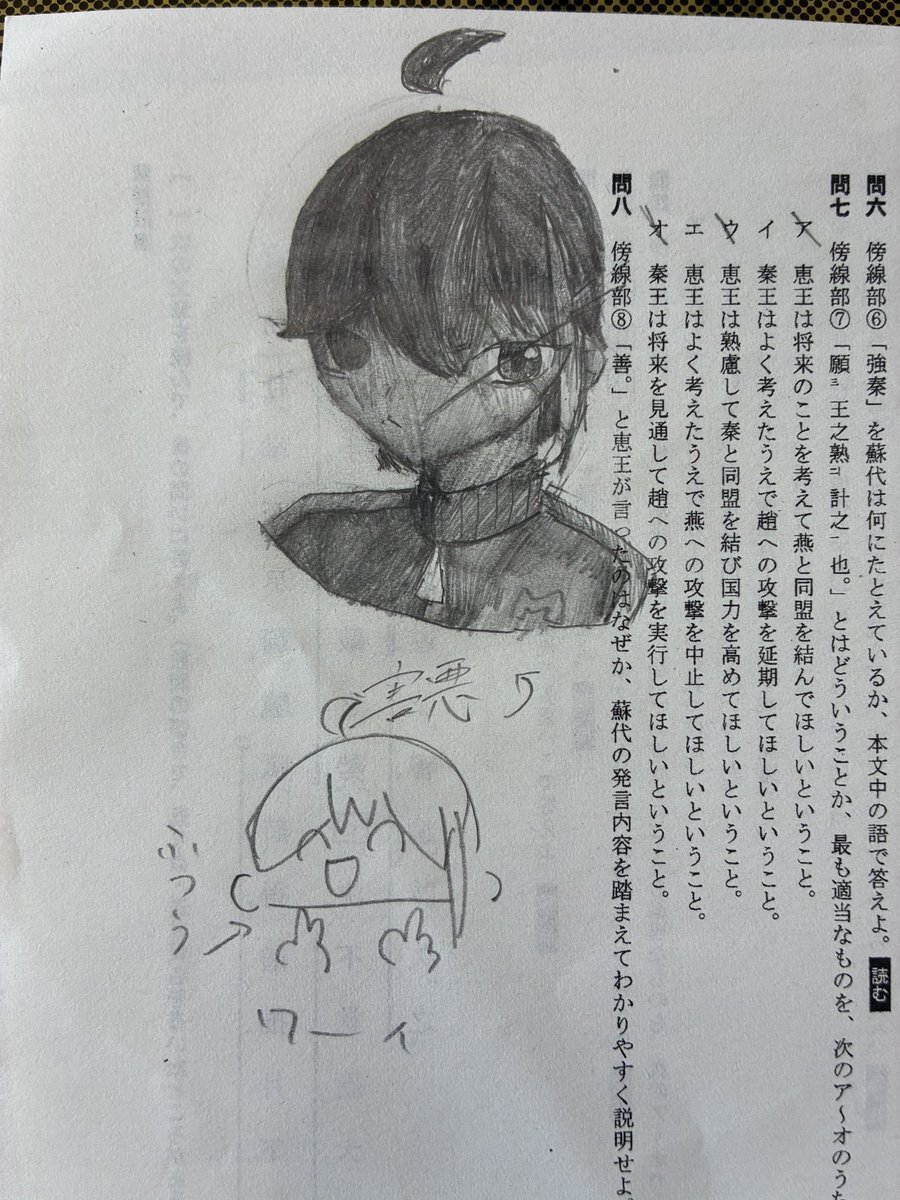 問六 傍線部⑥「強秦」を蘇代は何にたとえているか、本文中の語で答えよ。 読む
問七 傍線部⑦「願三王之熟二計之一也。」とはどういうことか、最も適当なものを、次のア〜オのうち
ア 恵王は将来のことを考えて燕と同盟を結んでほしいということ。
イ 秦王はよく考えたうえで趙への攻撃を延期してほしいということ。
ウ 恵王は熟慮して秦と同盟を結び国力を高めてほしいということ。
エ 恵王はよく考えたうえで燕への攻撃を中止してほしいということ。
オ 秦王は将来を見通して趙への攻撃を実行してほしいということ。
問八 傍線部⑧「善。」と恵王が言ったのはなぜか、蘇代の発言内容を踏まえてわかりやすく説明せよ。
害悪
ふつう
ワーイ